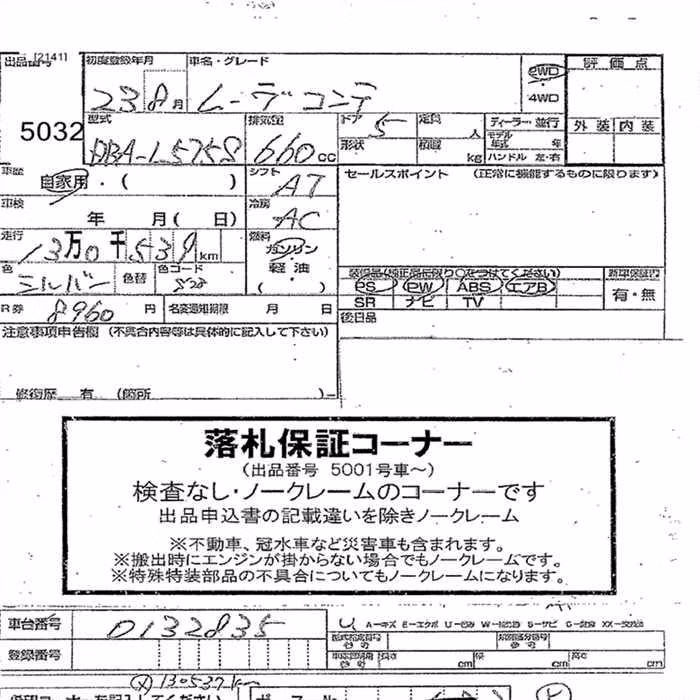 出品番号 [2141] 初度登録年月 車名・グレード 評価点
23 8月 ムーヴ コンテ 2WD
4WD
5032 型式 排気量 ドア 5 定員 人 ディーラー・並行 外装 内装
DBA-L575S 660cc 形状 積載 kg モデル年式 年
ハンドル 左・右
車歴 自家用・( ) シフト AT セールスポイント (正常に機能するものに限ります)
車検 年 月( 日) 冷房 AC
走行 13万0千539km 燃料 ガソリン
軽油
( )
色 シルバー 色替 色コード 装備品(純正品に限り○をつけてください) 新車保証書
PS PW ABS エアB 有・無
SR ナビ TV
R券 8960円 名変通知期限 月 日 後日品
注意事項申告欄 (不具合内容等は具体的に記入して下さい)
修復歴 有 (箇所 )
落札保証コーナー
(出品番号 5001号車~)
検査なし・ノークレームのコーナーです
出品申込書の記載違いを除きノークレーム
※不動車、冠水車など災害車も含まれます。
※搬出時にエンジンが掛からない場合でもノークレームです。
※特殊特装部品の不具合についてもノークレームになります。
車台番号 0132835 A-キズ E-エクボ
登録番号 長さ cm 幅 cm 高さ cm
130537km